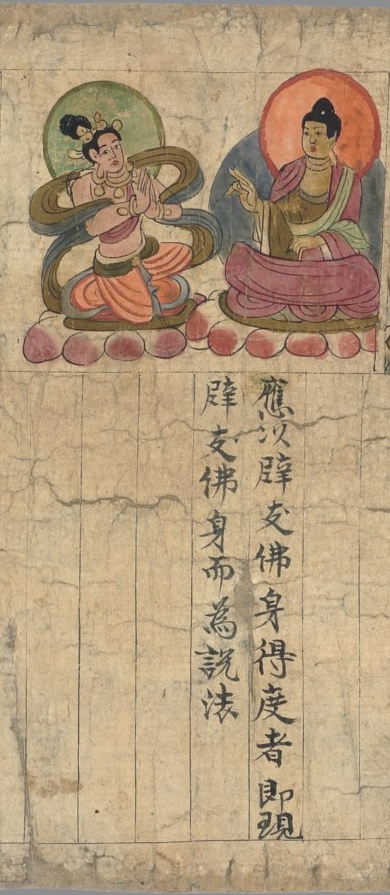 應以辟支佛身得度者即現
辟支佛身而為說法